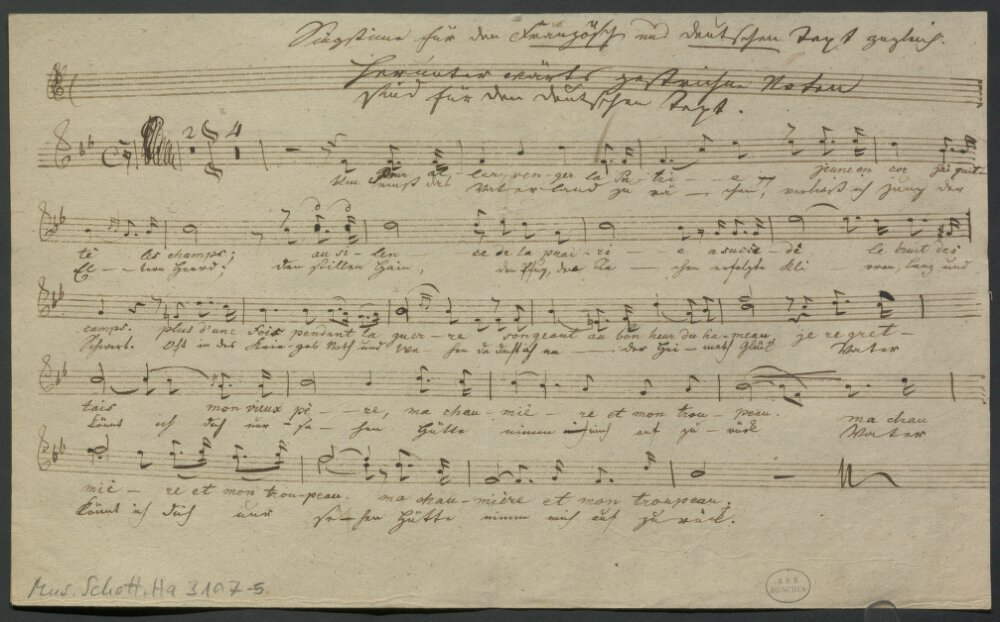 Singstimme für den Französch und deutschen Text zugleich.
Herunter wärts gestrichne Noten
sind für den deutschen Text.
2 4
Pour al-ler ven-ger la Pa-tri-e jeune en cor j'ai quit-
Um das Vaterland zu rä-chen, verließ ich jung den
té les champs; au si-len-ce de la prai-ri-e a succé-dé le bruit des
El-tern Heerd. den stillen Hain, den Pflug, den
camps. plus d'une fois pendant la guer-re songeant au bon heur du ha-meau je regret-
Schwert. Oft in des Krie-ges Noth und dacht ich an der Hei-math Glück Vater
tais mon vieux pè-re, ma chau-miè-re et mon trou-peau. ma chau
könnt ich dich nur se-hen Hütte nimm mich auf zu-rück Vater
miè-re et mon trou-peau. ma chau-mière et mon troupeau.
könnt ich dich nur se-hen Hütte nimm mich auf zurück.
Mus. Schott. Ha 3107-5.
BSB
MÜNCHEN